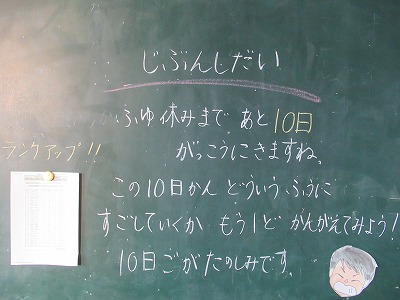 じぶんしだい
ふゆ休みまで あと10日
ランクアップ!!
がっこうにきますね。
この10日かん どういう ふうに
すごしていくか もう1ど かんがえてみよう!
10日ごが たのしみです。